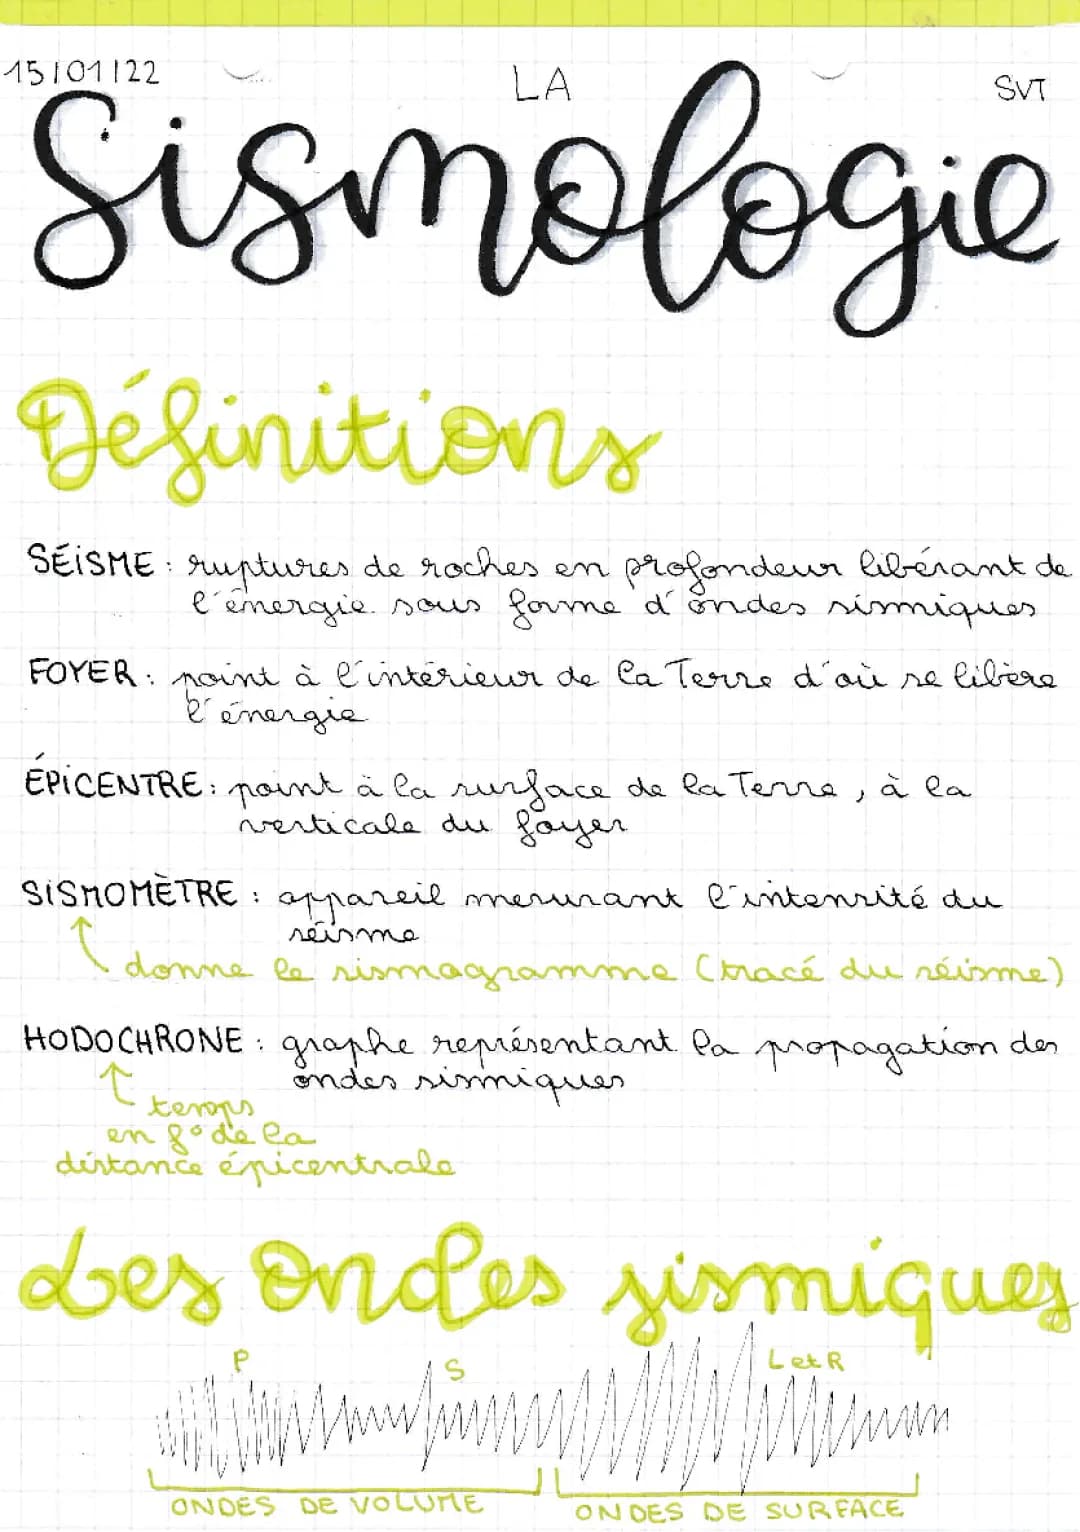 15/01/22 LA SVT
Sismologie
Définitions
SÉISME : ruptures de roches en profondeur libérant de
l'énergie sous forme d'ondes sismiques
FOYER : point à l'intérieur de la Terre d'où se libère
l'énergie
ÉPICENTRE : point à la surface de la Terre, à la
verticale du foyer
SISMOMÈTRE : appareil mesurant l'intensité du
séisme
donne le sismogramme (tracé du séisme)
HODOCHRONE : graphe représentant la propagation des
ondes sismiques
temps
en f° de la
distance épicentrale
Les ondes sismiques
P S L et R
ONDES DE VOLUME ONDES DE SURFACE